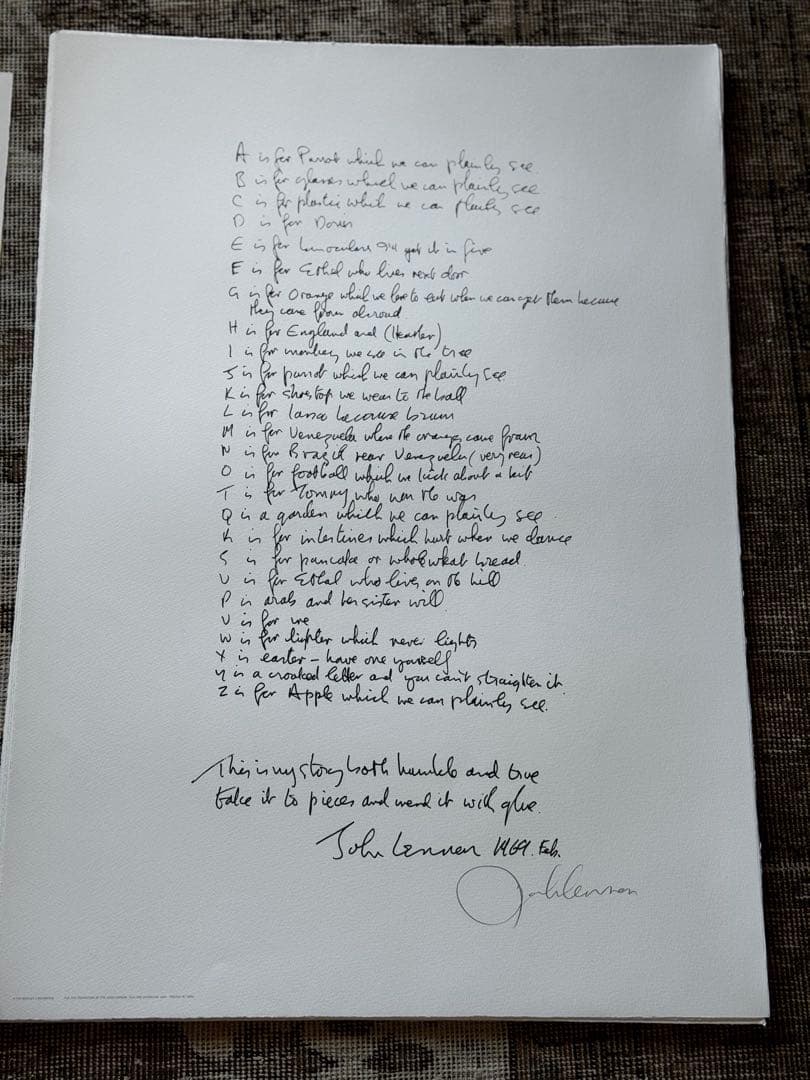 A is for Parrot which we can plainly see
B is for glasses which we can plainly see
C is for plastic which we can plainly see
D is for Doris
E is for binoculars I'll get it in five
F is for Ethel who lives next door
G is for Orange which we love to eat when we can get them because
they come from abroad
H is for England and (Heather)
I is for monkey we see in the tree
J is for parrot which we can plainly see
K is for shoetop we wear to the ball
L is for lamo because brum
M is for Venezuela where the oranges come from
N is for Brazil near Venezuela (very near)
O is for football which we kick about a bit
T is for Tommy who won the war
Q is a garden which we can plainly see
R is for intestines which hurt when we dance
S is for pancake or whole wheat bread
U is for Ethel who lives on the hill
P is arab and her sister will
V is for me
W is for lighter which never lights
X is easter - have one yourself
Y is a crooked letter and you can't straighten it
Z is for Apple which we can plainly see.
This is my story both humble and true
take it to pieces and mend it with glue.
John Lennon 1969. Feb.
John Lennon